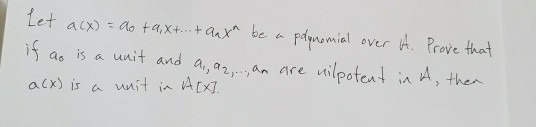 Let a(x) = a₀ + a₁x + ... + aₙxⁿ be a polynomial over A. Prove that
if a₀ is a unit and a₁, a₂, ..., aₙ are nilpotent in A, then
a(x) is a unit in A[x].